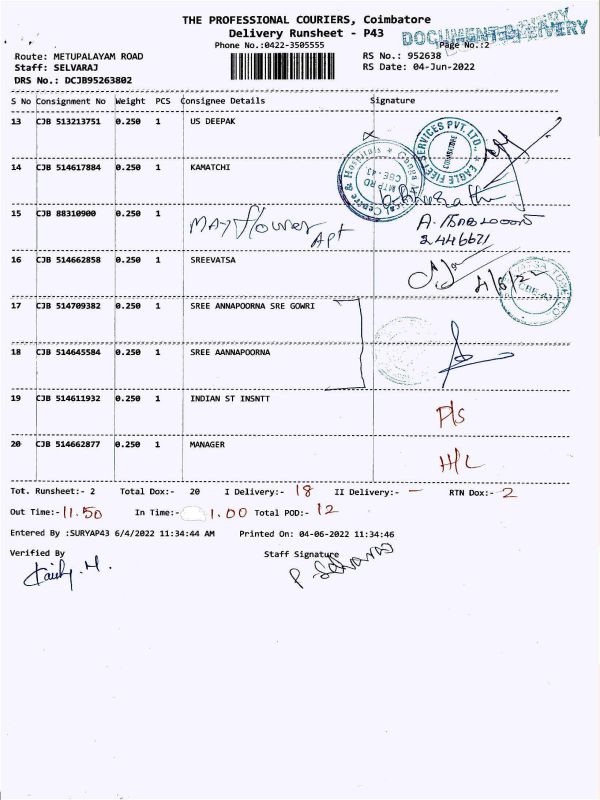 THE PROFESSIONAL COURIERS, Coimbatore
Delivery Runsheet - P43
DOCUMENT DELIVERY
Phone No.:0422-3505555
Page No.:2
Route: METUPALAYAM ROAD
RS No.: 952638
Staff: SELVARAJ
RS Date: 04-Jun-2022
DRS No.: DCJB95263802
S No Consignment No Weight PCS Consignee Details Signature
13 CJB 513213751 0.250 1 US DEEPAK
EAGLE FLEET SERVICES PVT. LTD.,
COIMBATORE
14 CJB 514617884 0.250 1 KAMATCHI
Centre & Hospitals * Ganga
MTP RD
CBE-43
15 CJB 88310900 0.250 1 MAYflower Apt
2446671
16 CJB 514662858 0.250 1 SREEVATSA
CBE-43
17 CJB 514709382 0.250 1 SREE ANNAPOORNA SRE GOWRI
18 CJB 514645584 0.250 1 SREE AANNAPOORNA
19 CJB 514611932 0.250 1 INDIAN ST INSNTT P/S
20 CJB 514662877 0.250 1 MANAGER H/L
Tot. Runsheet:- 2 Total Dox:- 20 I Delivery:- 18 II Delivery:- — RTN Dox:- 2
Out Time:- 11.50 In Time:- 1.00 Total POD:- 12
Entered By :SURYAP43 6/4/2022 11:34:44 AM Printed On: 04-06-2022 11:34:46
Verified By Staff Signature
P. Selvaraj